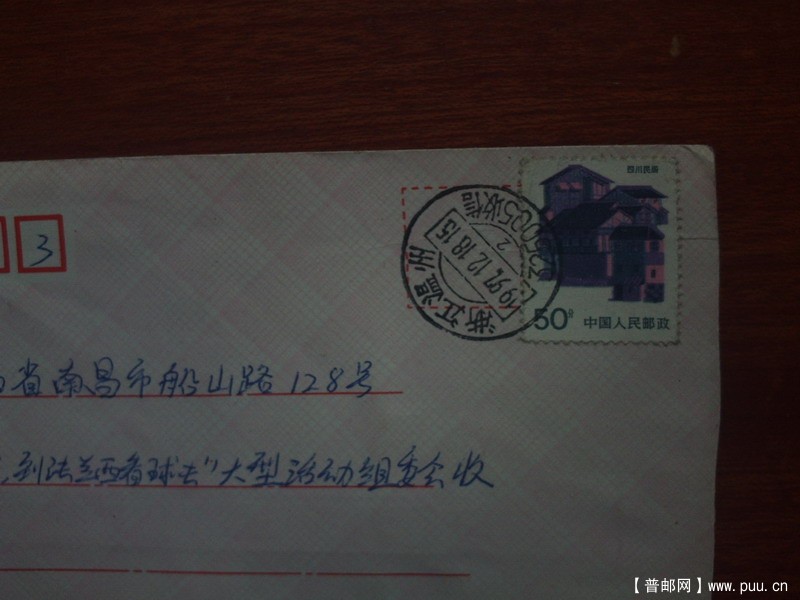 四川民居
50分 中国人民邮政
浙江温州
1997.12.18.15
325005收信
2
3
省南昌市船山路128号
到法兰西看球去"大型活动组委会收
【普邮网】www.puu.cn